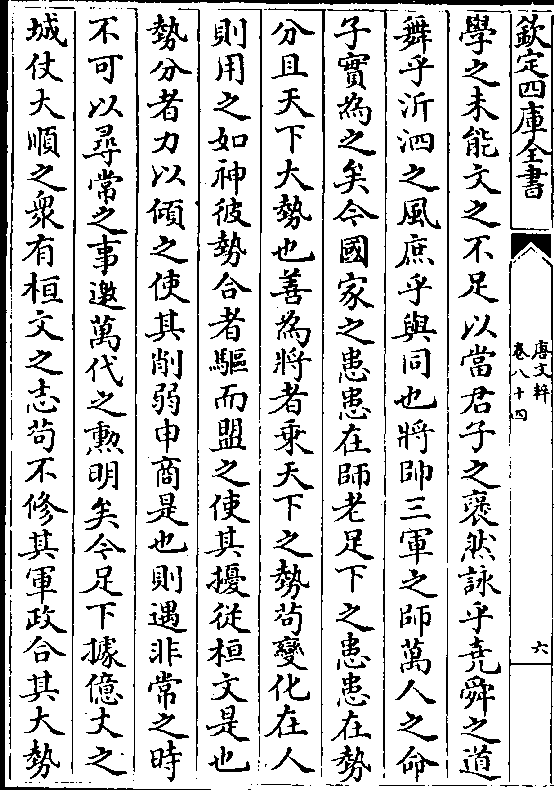 欽定四庫全書
唐文粹
卷八十四
六
學之未能文之不足以當君子之褒然詠乎堯舜之道
舞乎沂泗之風庶乎與同也將帥三軍之師萬人之命
子實為之矣今國家之患患在師老足下之患患在勢
分且天下大勢也善為將者乘天下之勢苟變化在人
則用之如神彼勢合者驅而盟之使其擾從桓文是也
勢分者力以傾之使其削弱申商是也則遇非常之時
不可以尋常之事邀萬代之勲明矣今足下據億丈之
城仗大順之衆有桓文之志苟不修其軍政合其大勢